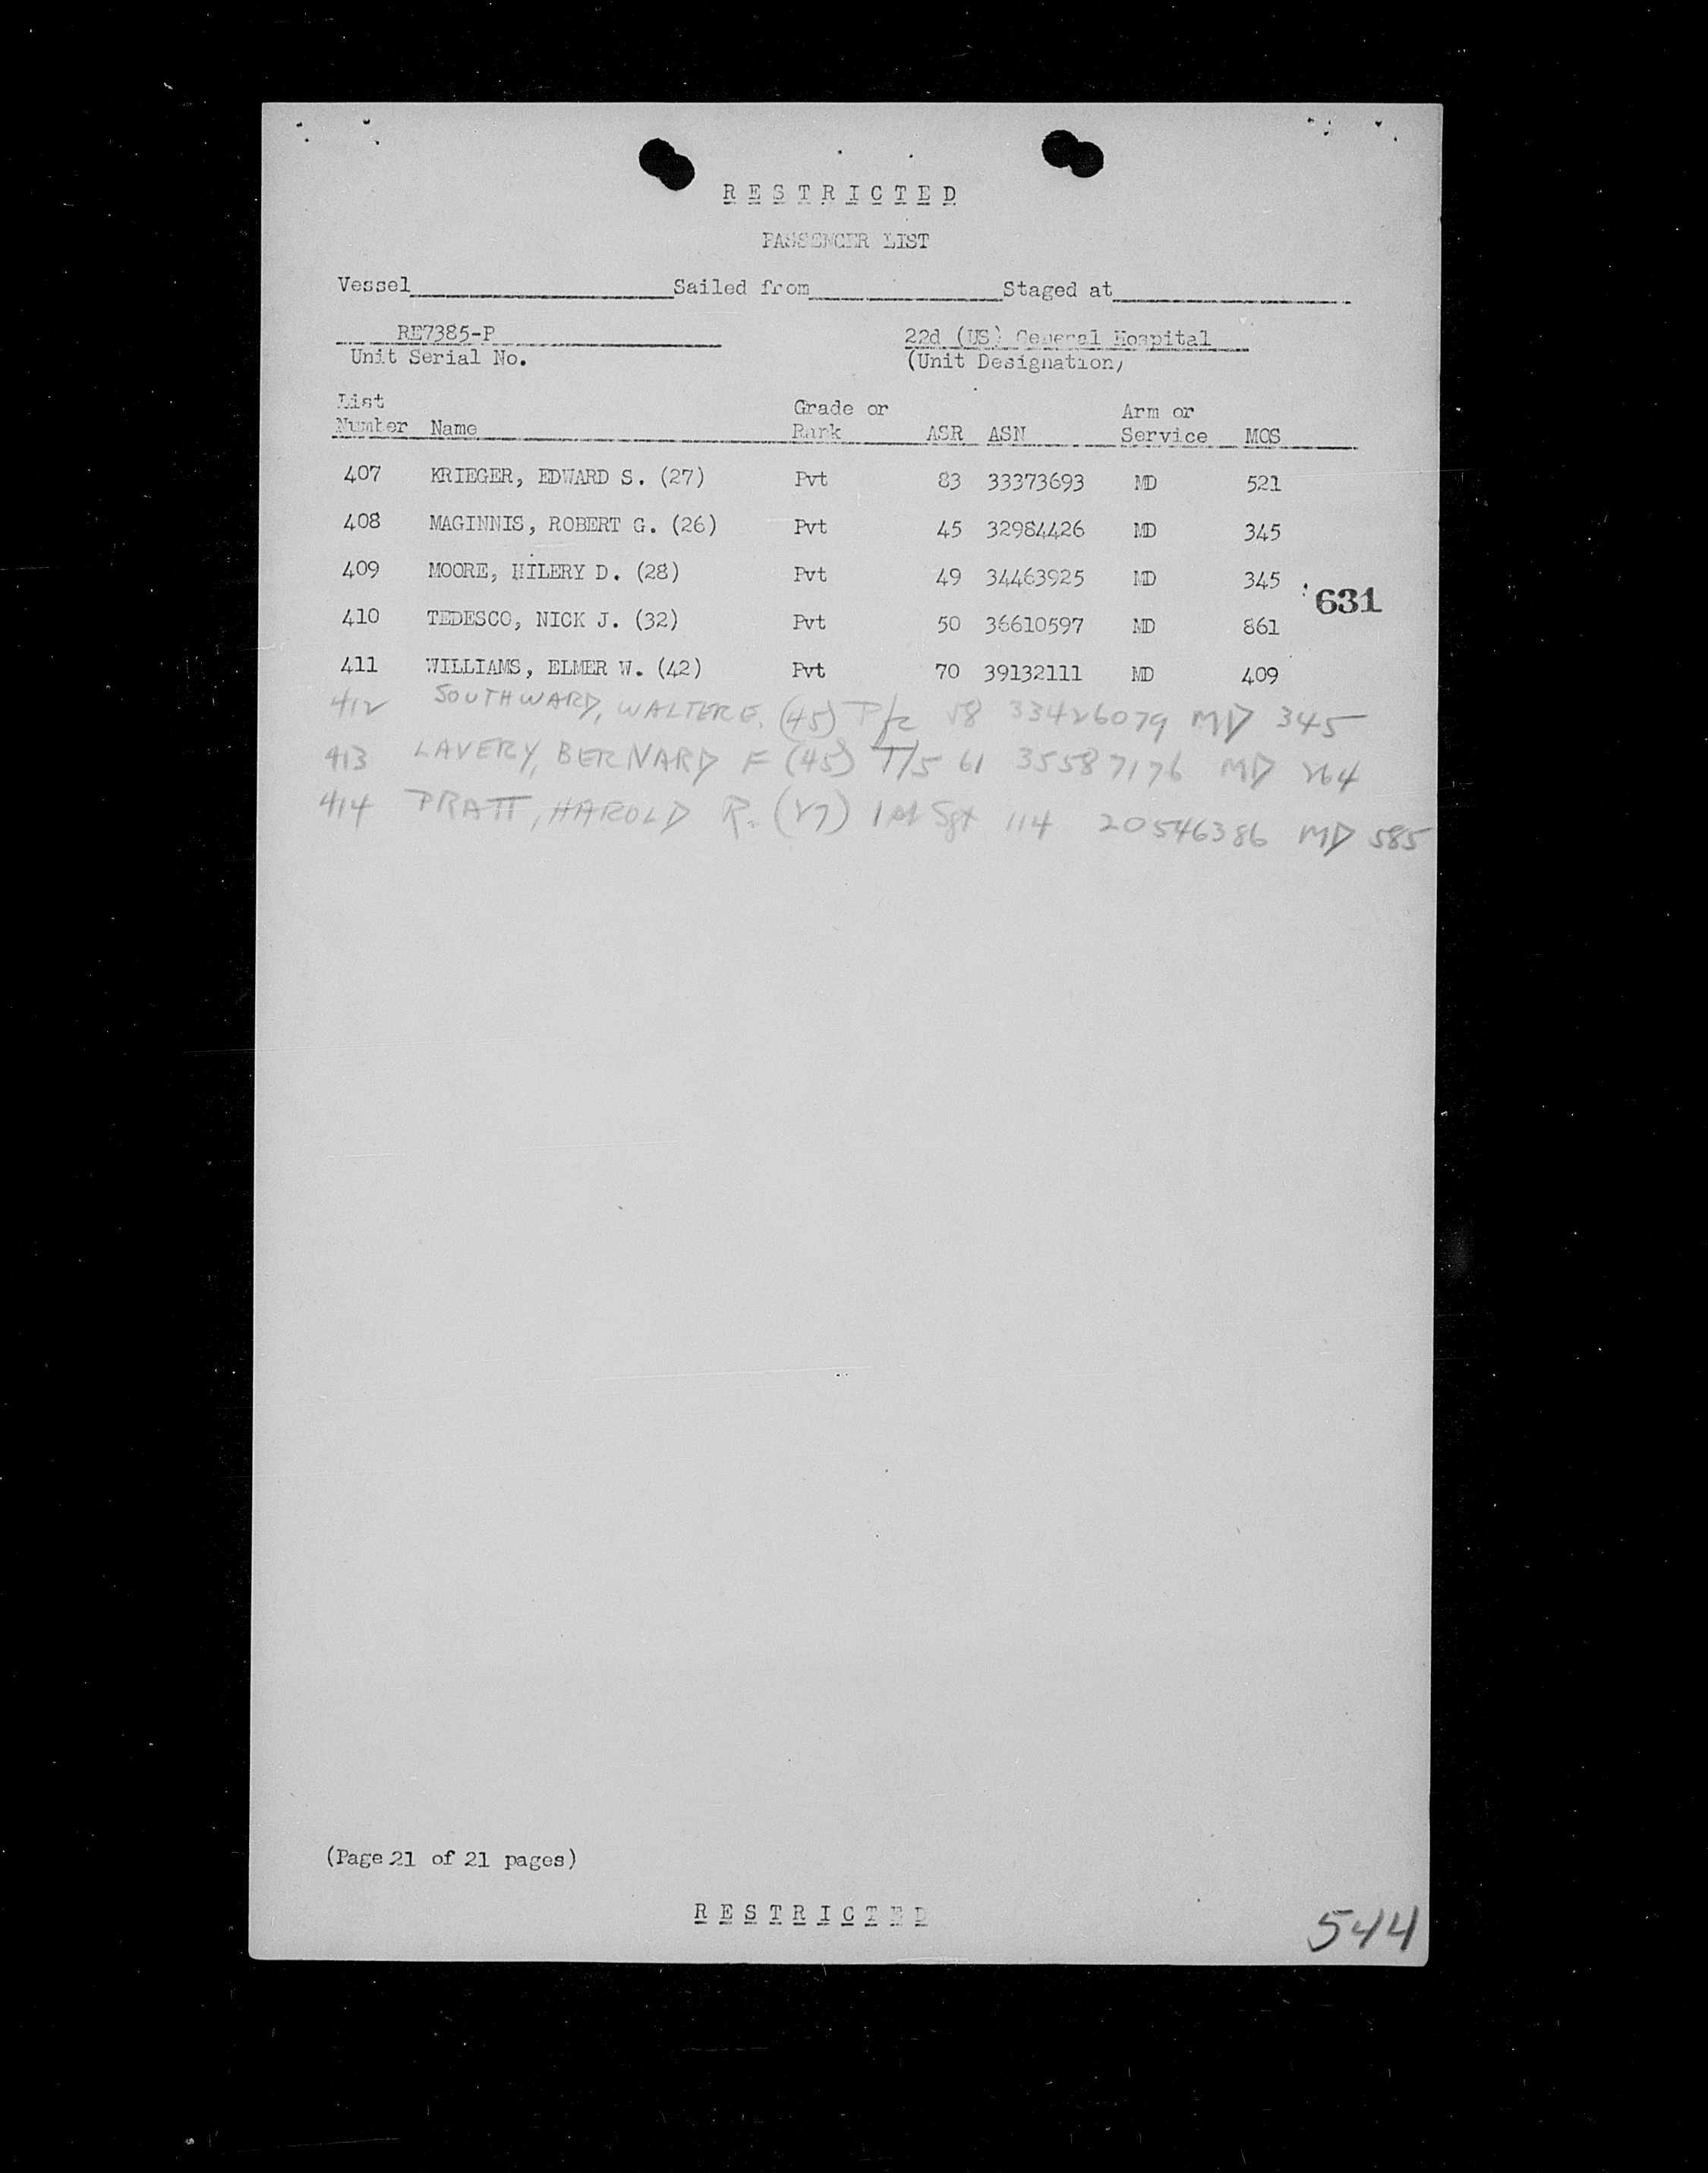 RESTRICTED
PASSENGER LIST
Vessel Sailed from Staged at
RE7385-P 22d (US) General Hospital
Unit Serial No. (Unit Designation)
List Grade or Arm or
Number Name Rank ASR ASN Service MOS
407 KRIEGER, EDWARD S. (27) Pvt 83 33373693 MD 521
408 MAGINNIS, ROBERT G. (26) Pvt 45 32984426 MD 345
409 MOORE, HILERY D. (28) Pvt 49 34463925 MD 345
631
410 TEDESCO, NICK J. (32) Pvt 50 36610597 MD 861
411 WILLIAMS, ELMER W. (42) Pvt 70 39132111 MD 409
412 SOUTHWARD, WALTER E. (45) Pfc 58 33426079 MD 345
413 LAVERY, BERNARD F (45) T/5 61 35587176 MD 264
414 PRATT, HAROLD R. (27) 1st Sgt 114 20546386 MD 585
(Page 21 of 21 pages)
RESTRICTED
544